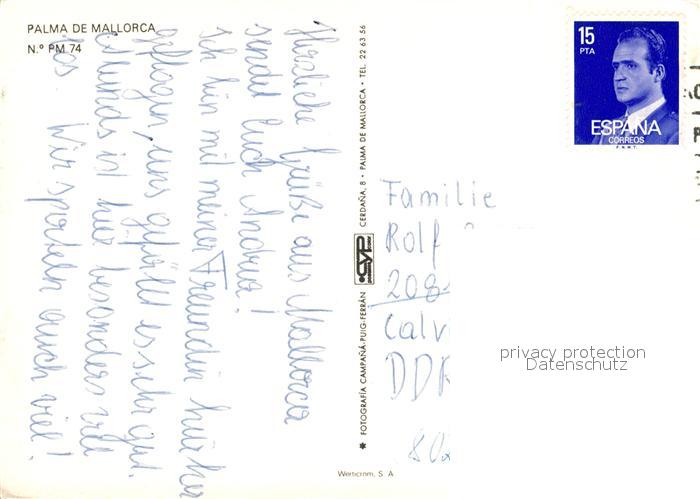 PALMA DE MALLORCA
N.º PM 74
Herzliche Grüße aus Mallorca
sendet Euch Andrea!
Ich bin mit meiner Freundin hierher
geflogen, uns gefällt es sehr gut.
ist hier besonders viel
los. Wir sporteln auch viel!
✱ FOTOGRAFÍA CAMPAÑÁ-PUIG-FERRÁN CYP CERDAÑA, 8 • PALMA DE MALLORCA • TEL. 22 63 56
15
PTA
ESPAÑA
CORREOS
F.N.M.T.
Familie
Rolf
208
Calv
DDR
802
privacy protection
Datenschutz
Werticrom, S. A